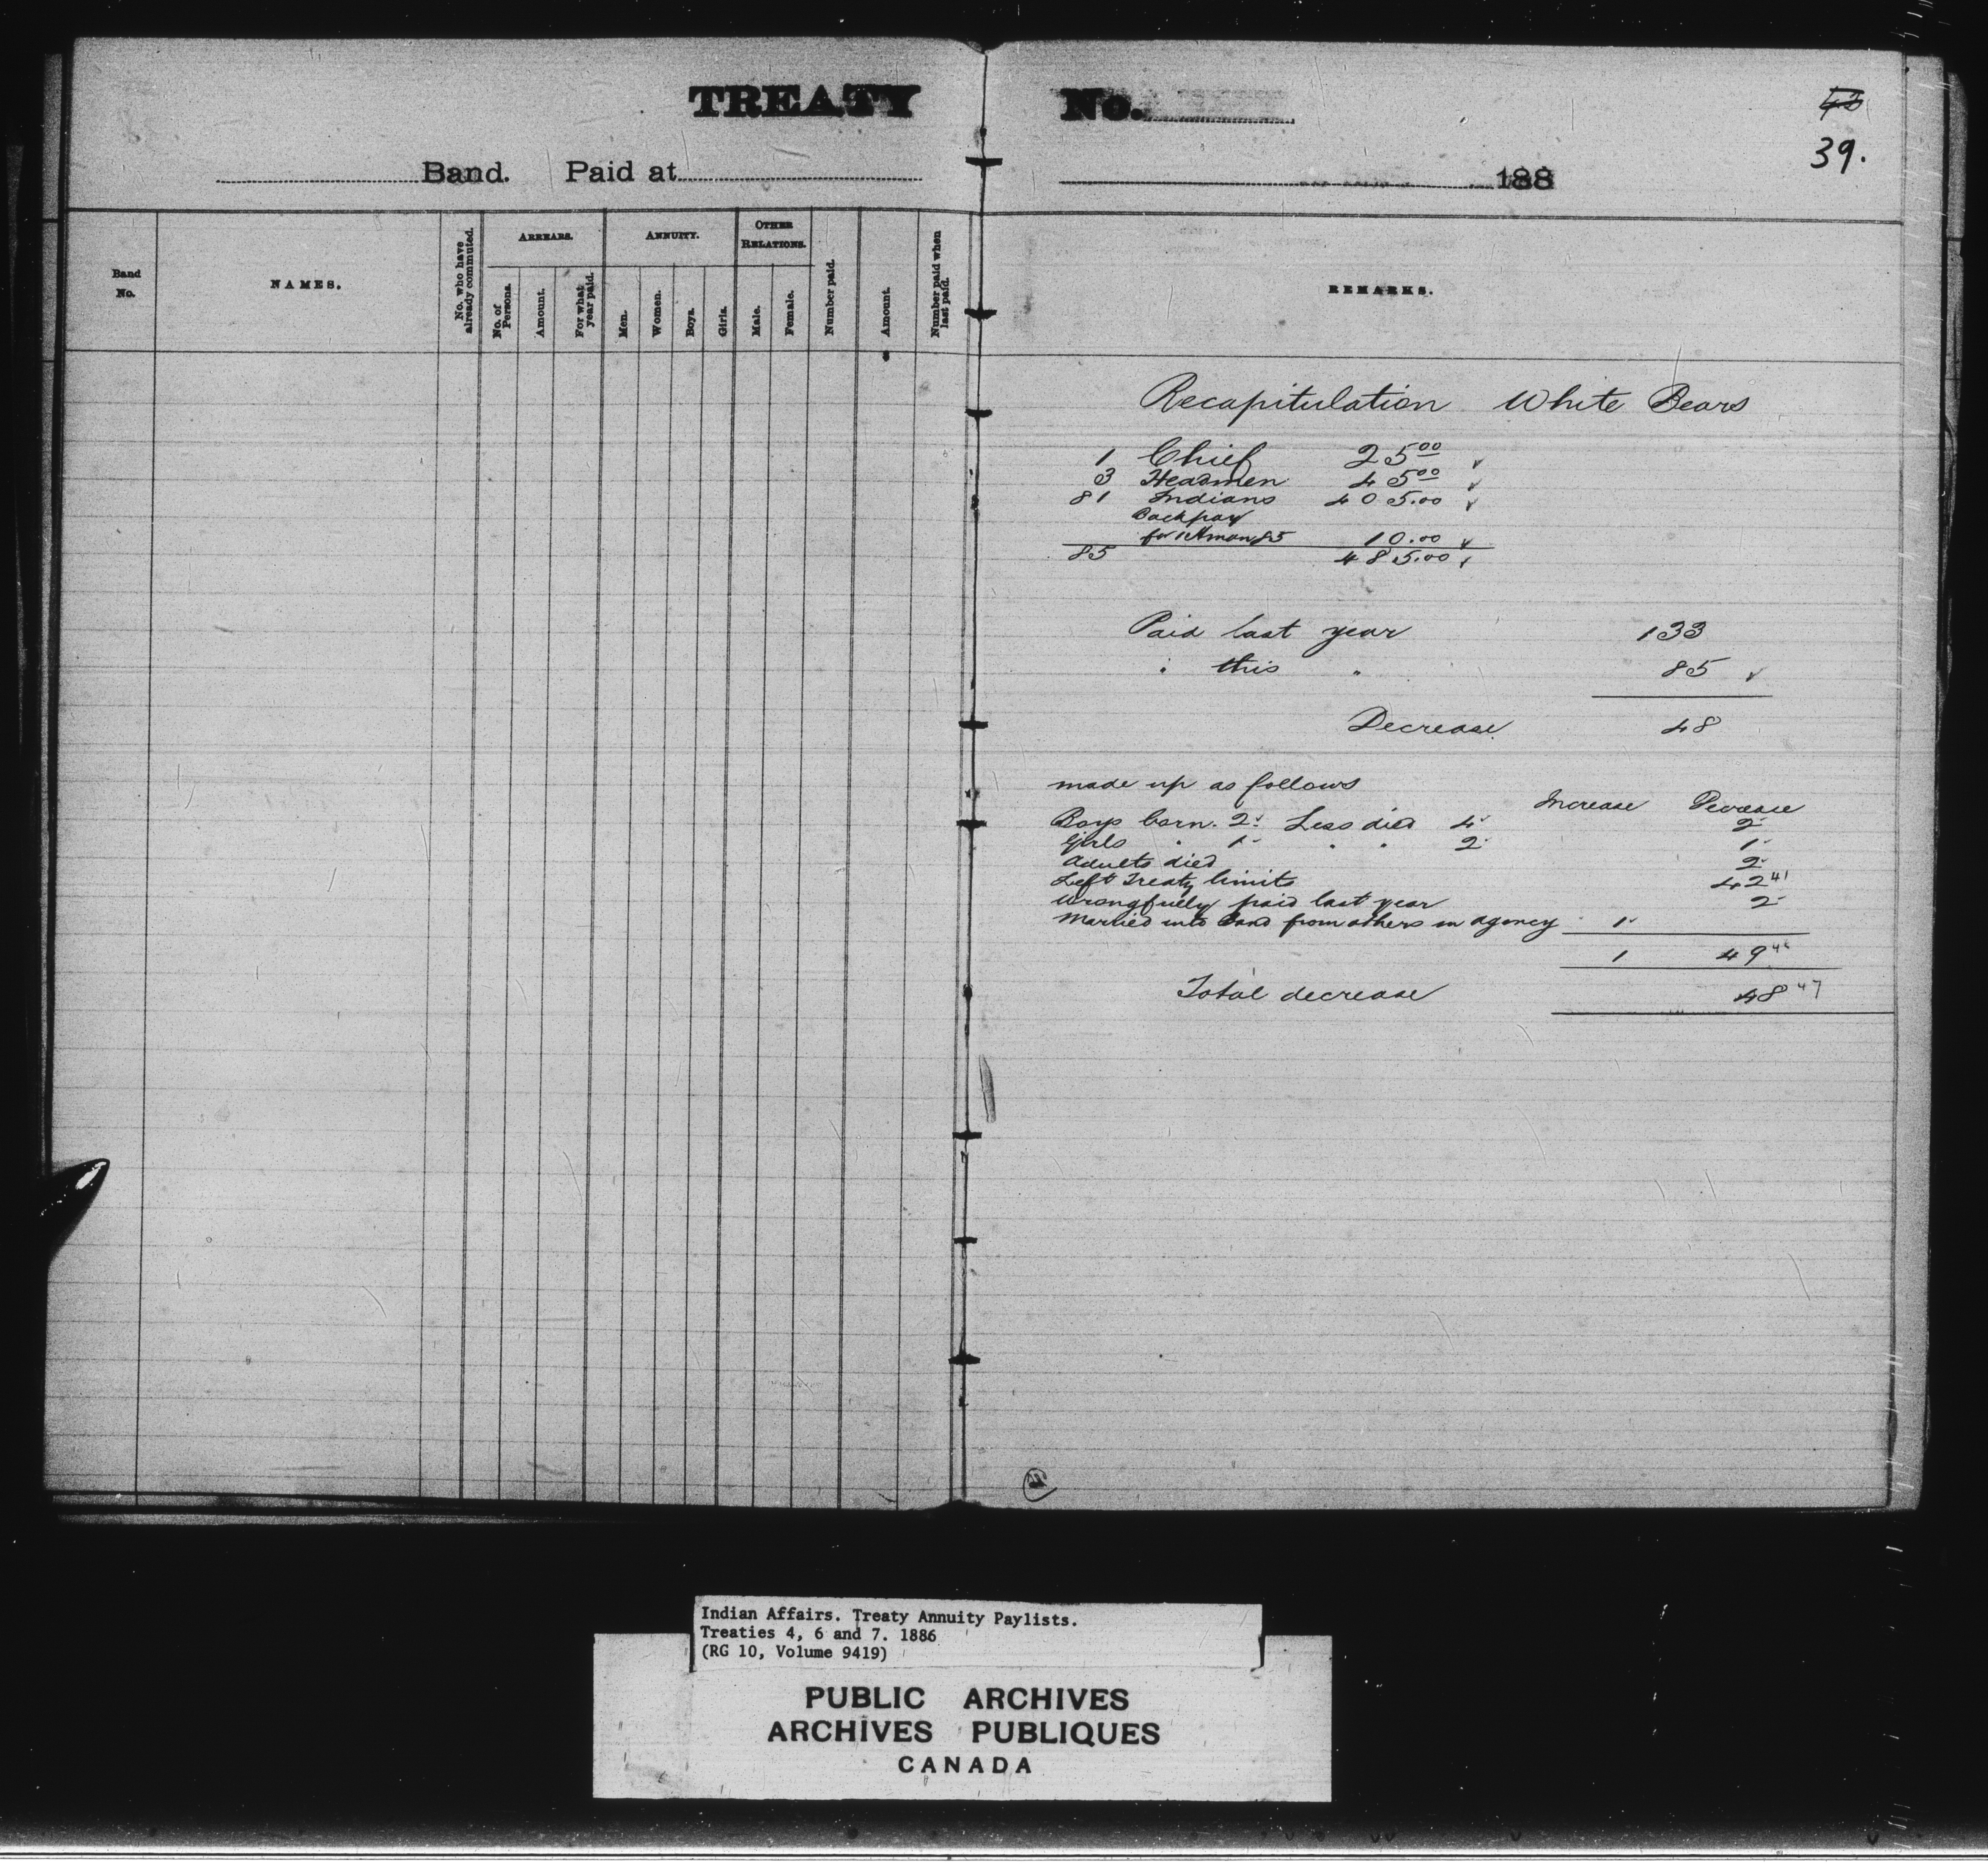 TREATY No.
43
39.
Band. Paid at 188
Band No.
NAMES.
No. who have already commuted.
ARREARS.
No. of Persons.
Amount.
For what year paid.
ANNUITY.
Men.
Women.
Boys.
Girls.
OTHER RELATIONS.
Male.
Female.
Number paid.
Amount.
Number paid when last paid.
REMARKS.
Recapitulation White Bears
1 Chief 25 00
3 Headmen 45 00
81 Indians 405.00
Back pay
for 1 Hman 85 10.00
85 485.00
Paid last year 133
" this " 85
Decrease 48
made up as follows
Increase Decrease
Boys born. 2 Less died 4 2
Girls " 1 " " 2 1
Adults died 2
Left Treaty limits 42 41
Wrongfully paid last year 2
Married into band from others in agency 1
1 49 48
Total decrease 48 47
Indian Affairs. Treaty Annuity Paylists.
Treaties 4, 6 and 7. 1886
(RG 10, Volume 9419)
PUBLIC ARCHIVES
ARCHIVES PUBLIQUES
CANADA